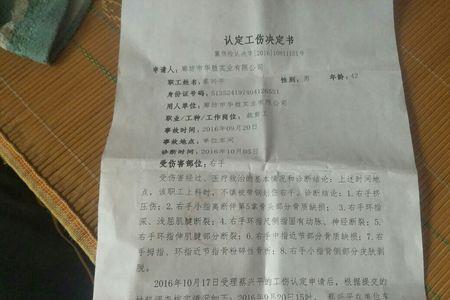 认定工伤决定书
申请人：廊坊市华胜实业有限公司
职工姓名：蔡兴平 性别：男 年龄：42
身份证号码：
用人单位：廊坊市华胜实业有限公司
职业/工种/工作岗位：
事故时间：2016年09月20日
事故地点：单位车间
诊断时间：2016年10月05日
受伤害部位：右手
受伤害经过、医疗救治的基本情况和诊断结论：上述时间地
点，该职工上料时，不慎被带钢划伤右手。诊断结论：1.右手挤
压伤；2.右手小指离断伴第5掌骨头部分骨质缺损；3.右手环指
深、浅屈肌腱断裂；4.右手环指尺侧指固有动脉、神经断裂；5.
右手环指伸肌腱部分断裂；6.右手中指近节部分骨质缺损；7.右
手拇指、环指近节指骨粉碎性骨折；8.右手小指背侧部分皮肤剥
脱。
2016年10月17日受理蔡兴平的工伤认定申请后，根据提交的
2016年9月20日15时，蔡兴平在单位车